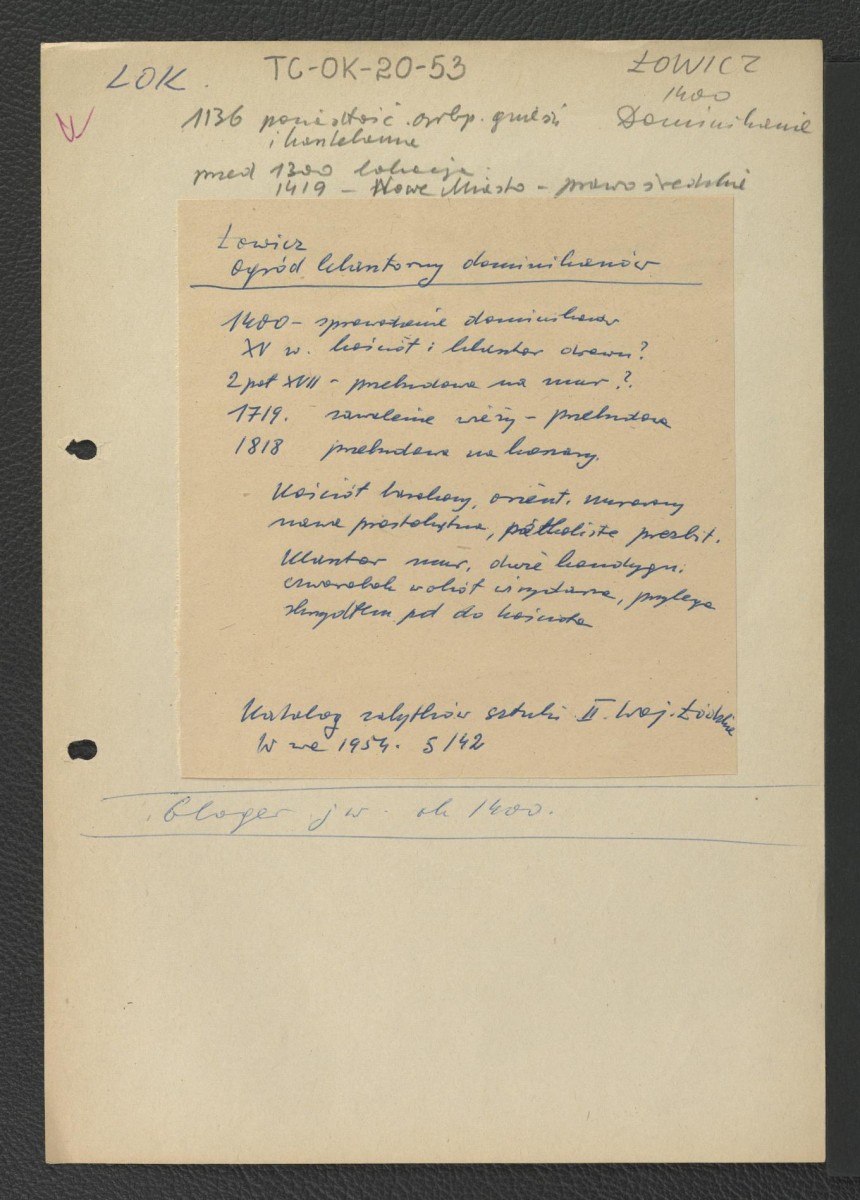 LOK.
TC-OK-20-53
ŁOWICZ
1400
Dominikanie
1136 posiadłość arbp. gnieźń
i kasztelania
przed 1300 lokacja
1419 – Nowe Miasto – prawo średzkie
Łowicz
Ogród klasztorny dominikanów
1400 – sprowadzenie dominikanów
XV w. kościół i klasztor drewn?
2 poł XVII – przebudowa na mur?.
1719. zawalenie wieży – przebudowa
1818 przebudowa na koszary.
Kościół barokowy, orient. murowany
nawa prostokątna, półkoliste prezbit.
Klasztor mur. dwie kondygn.
czworobok wokół wirydarza, przylega
skrzydłem pd do kościoła
Katalog zabytków sztuki II. Woj. Łódzkie
W-wa 1954. S 142
Gloger j w. ok 1400.